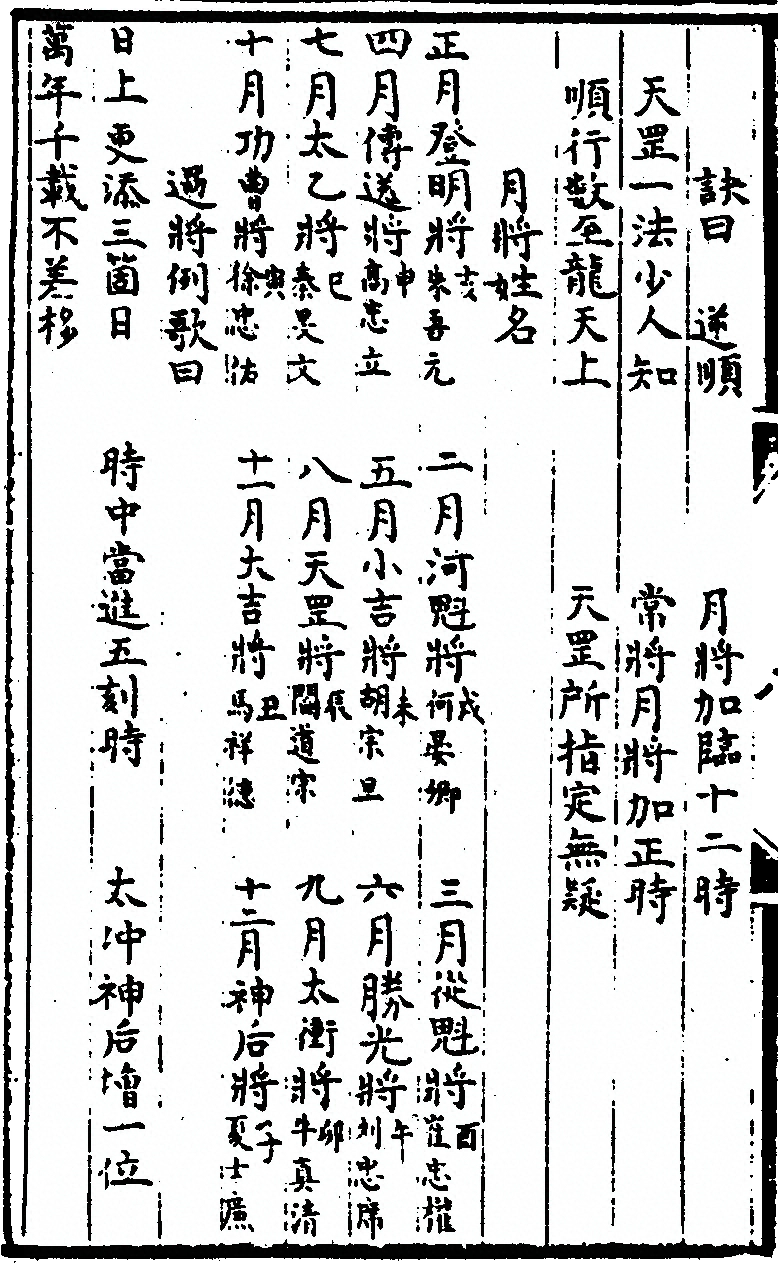 訣曰　逆順　月將加臨十二時
天罡一法少人知　常將月將加正時
順行數至龍天上　天罡所指定無疑
月將姓名
正月登明將亥朱吾元　二月河魁將戌何晏卿　三月從魁將酉崔忠權
四月傳送將申高忠立　五月小吉將未胡宗旦　六月勝光將午刘忠席
七月太乙將巳秦旻文　八月天罡將辰閻道宗　九月太衝將卯牛真清
十月功曹將寅徐忠佑　十一月大吉將丑馬祥德　十二月神后將子夏士廣
過將例歌曰
日上更添三箇日　時中當進五刻時　太冲神后增一位
萬年千載不差移